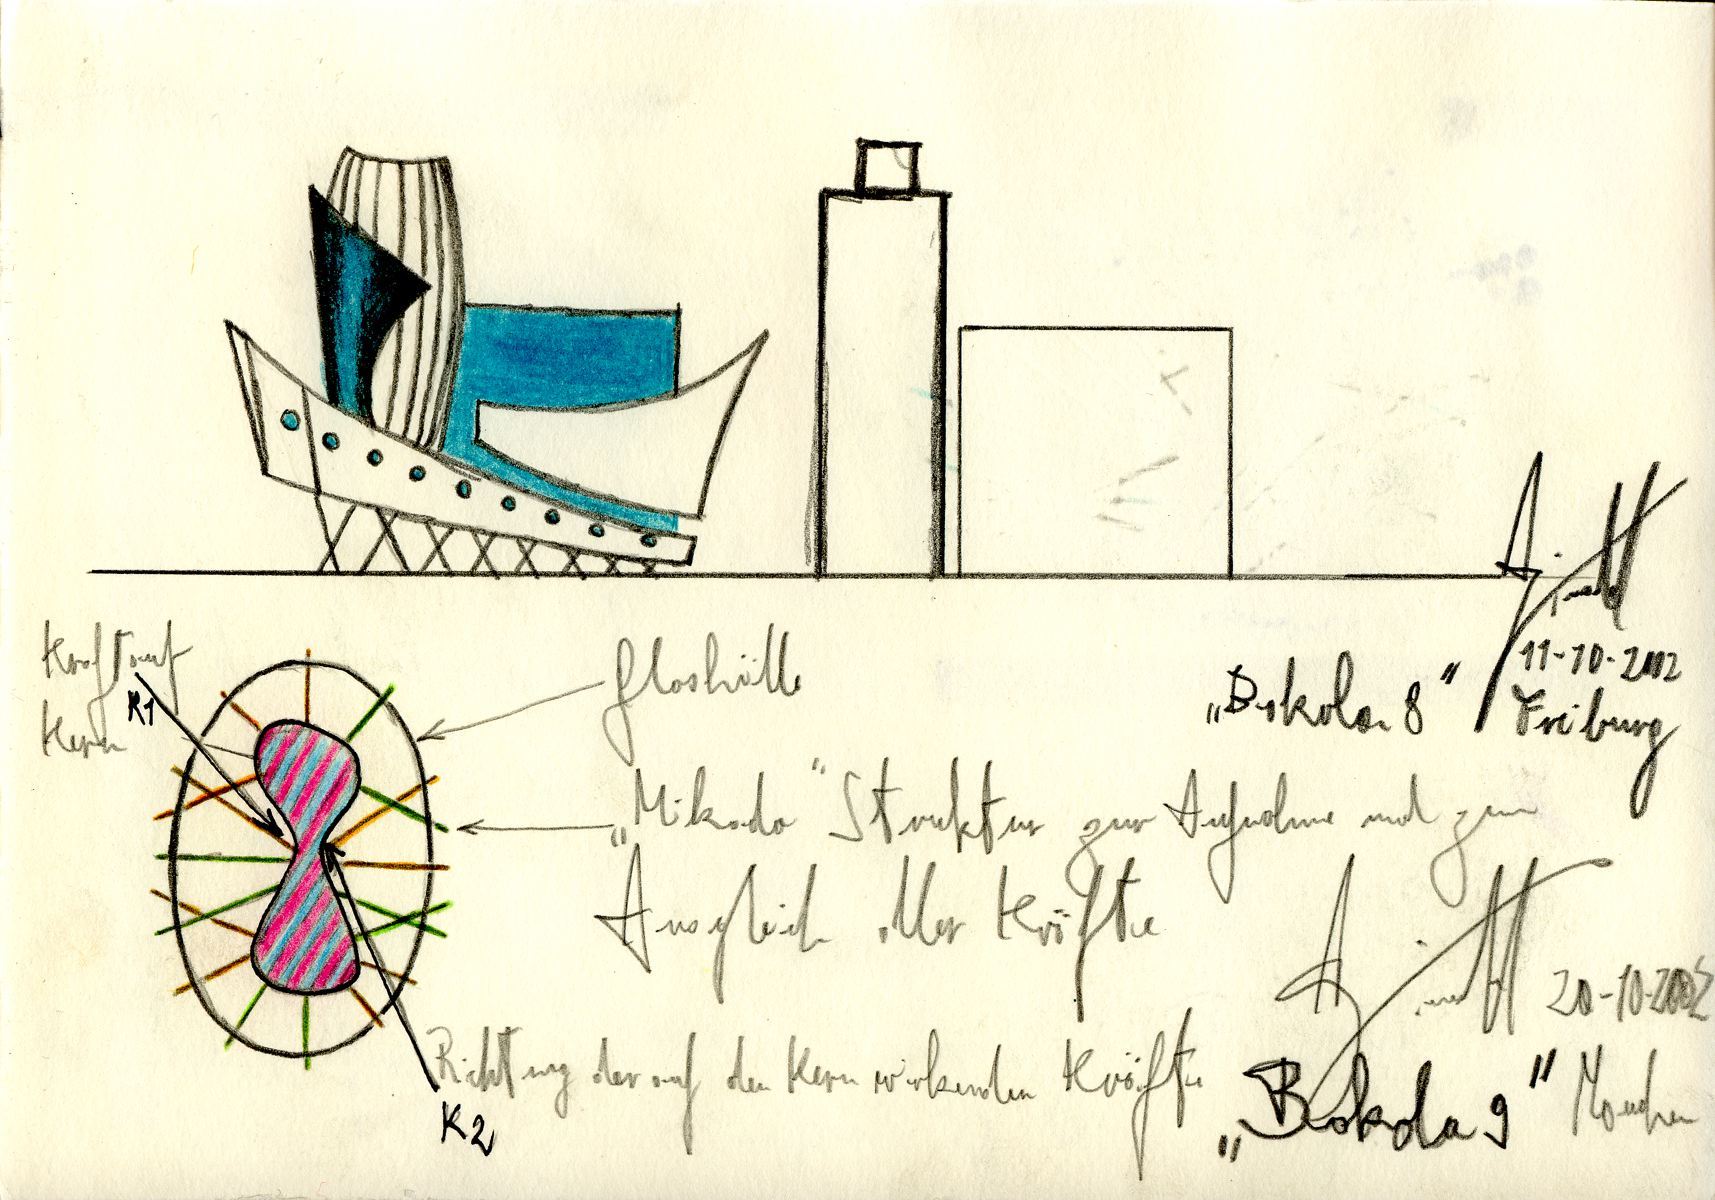 Kraft auf
Kern
K1
Glashülle
„Mikado" Struktur zur Aufnahme und zum
Ausgleich aller Kräfte
Richtung der auf den Kern wirkenden Kräfte
K2
11-10-2002
Freiburg
20-10-2002
"München